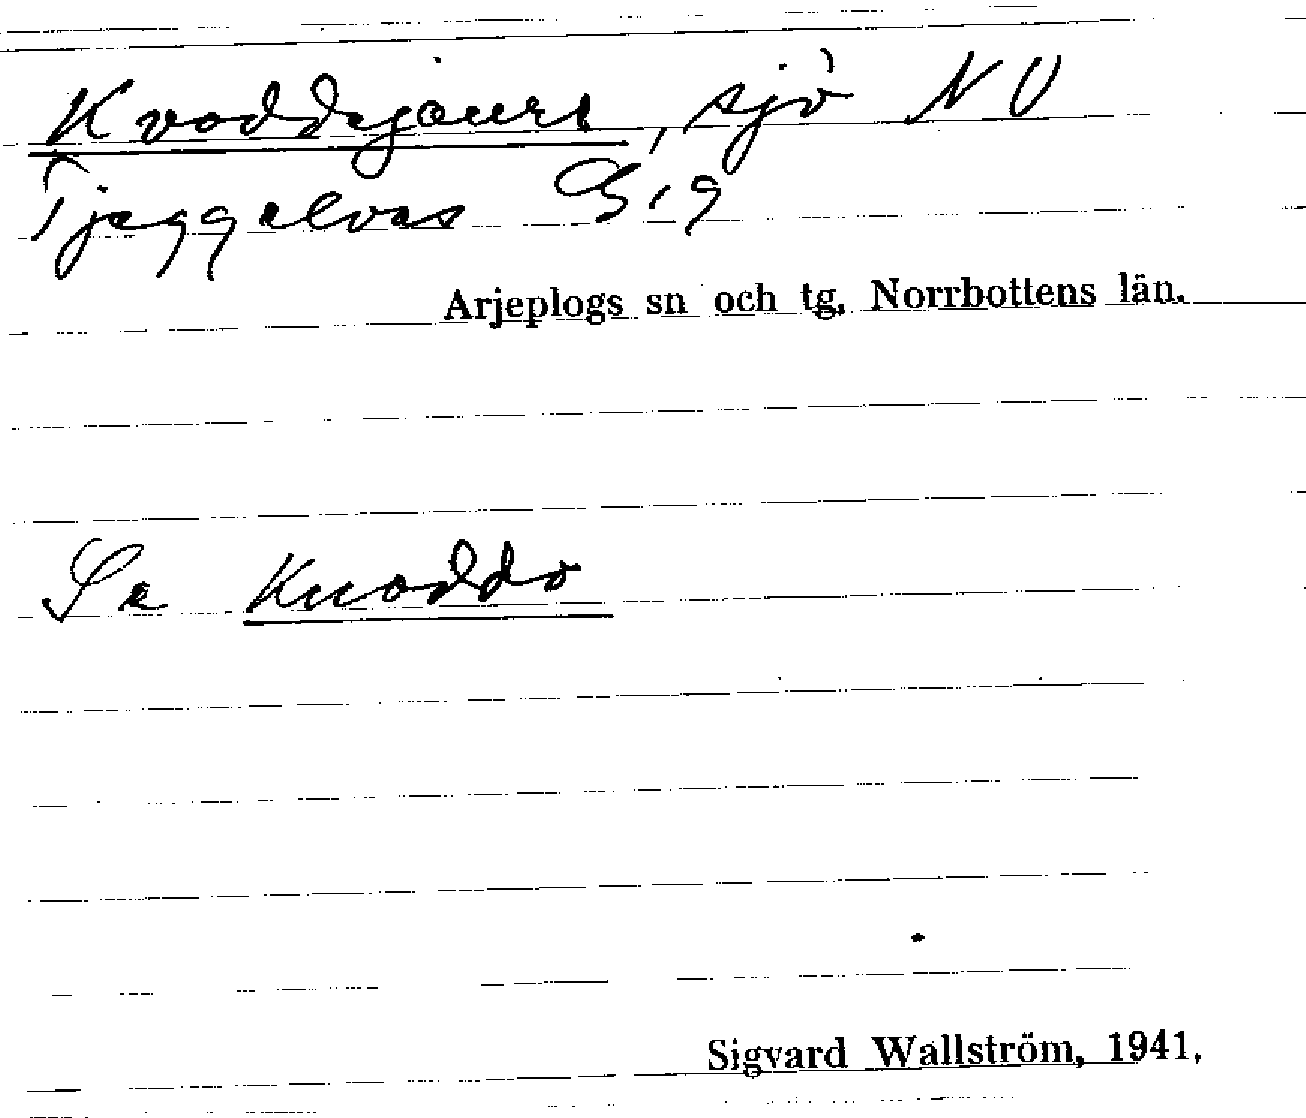 Kvoddejaure, sjö NV
Tjeggelvas G, 9
Arjeplogs sn och tg, Norrbottens län.
Se Kuoddo
Sigvard Wallström, 1941.